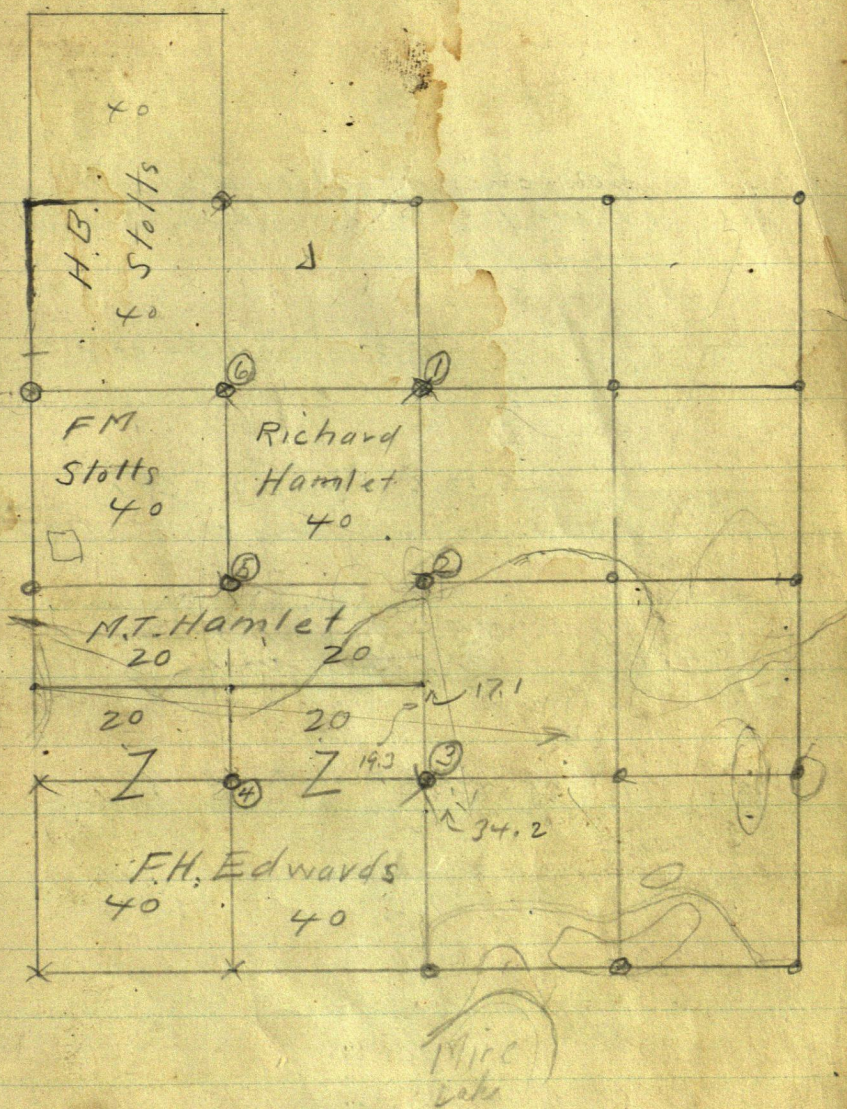 40
H.B. Stotts
40
6
1
FM
Stotts
40
Richard
Hamlet
40
5
2
M.T. Hamlet
20 20
17.1
20 20
Z Z
19.3
3
4
34.2
F.H. Edwards
40 40
Lake